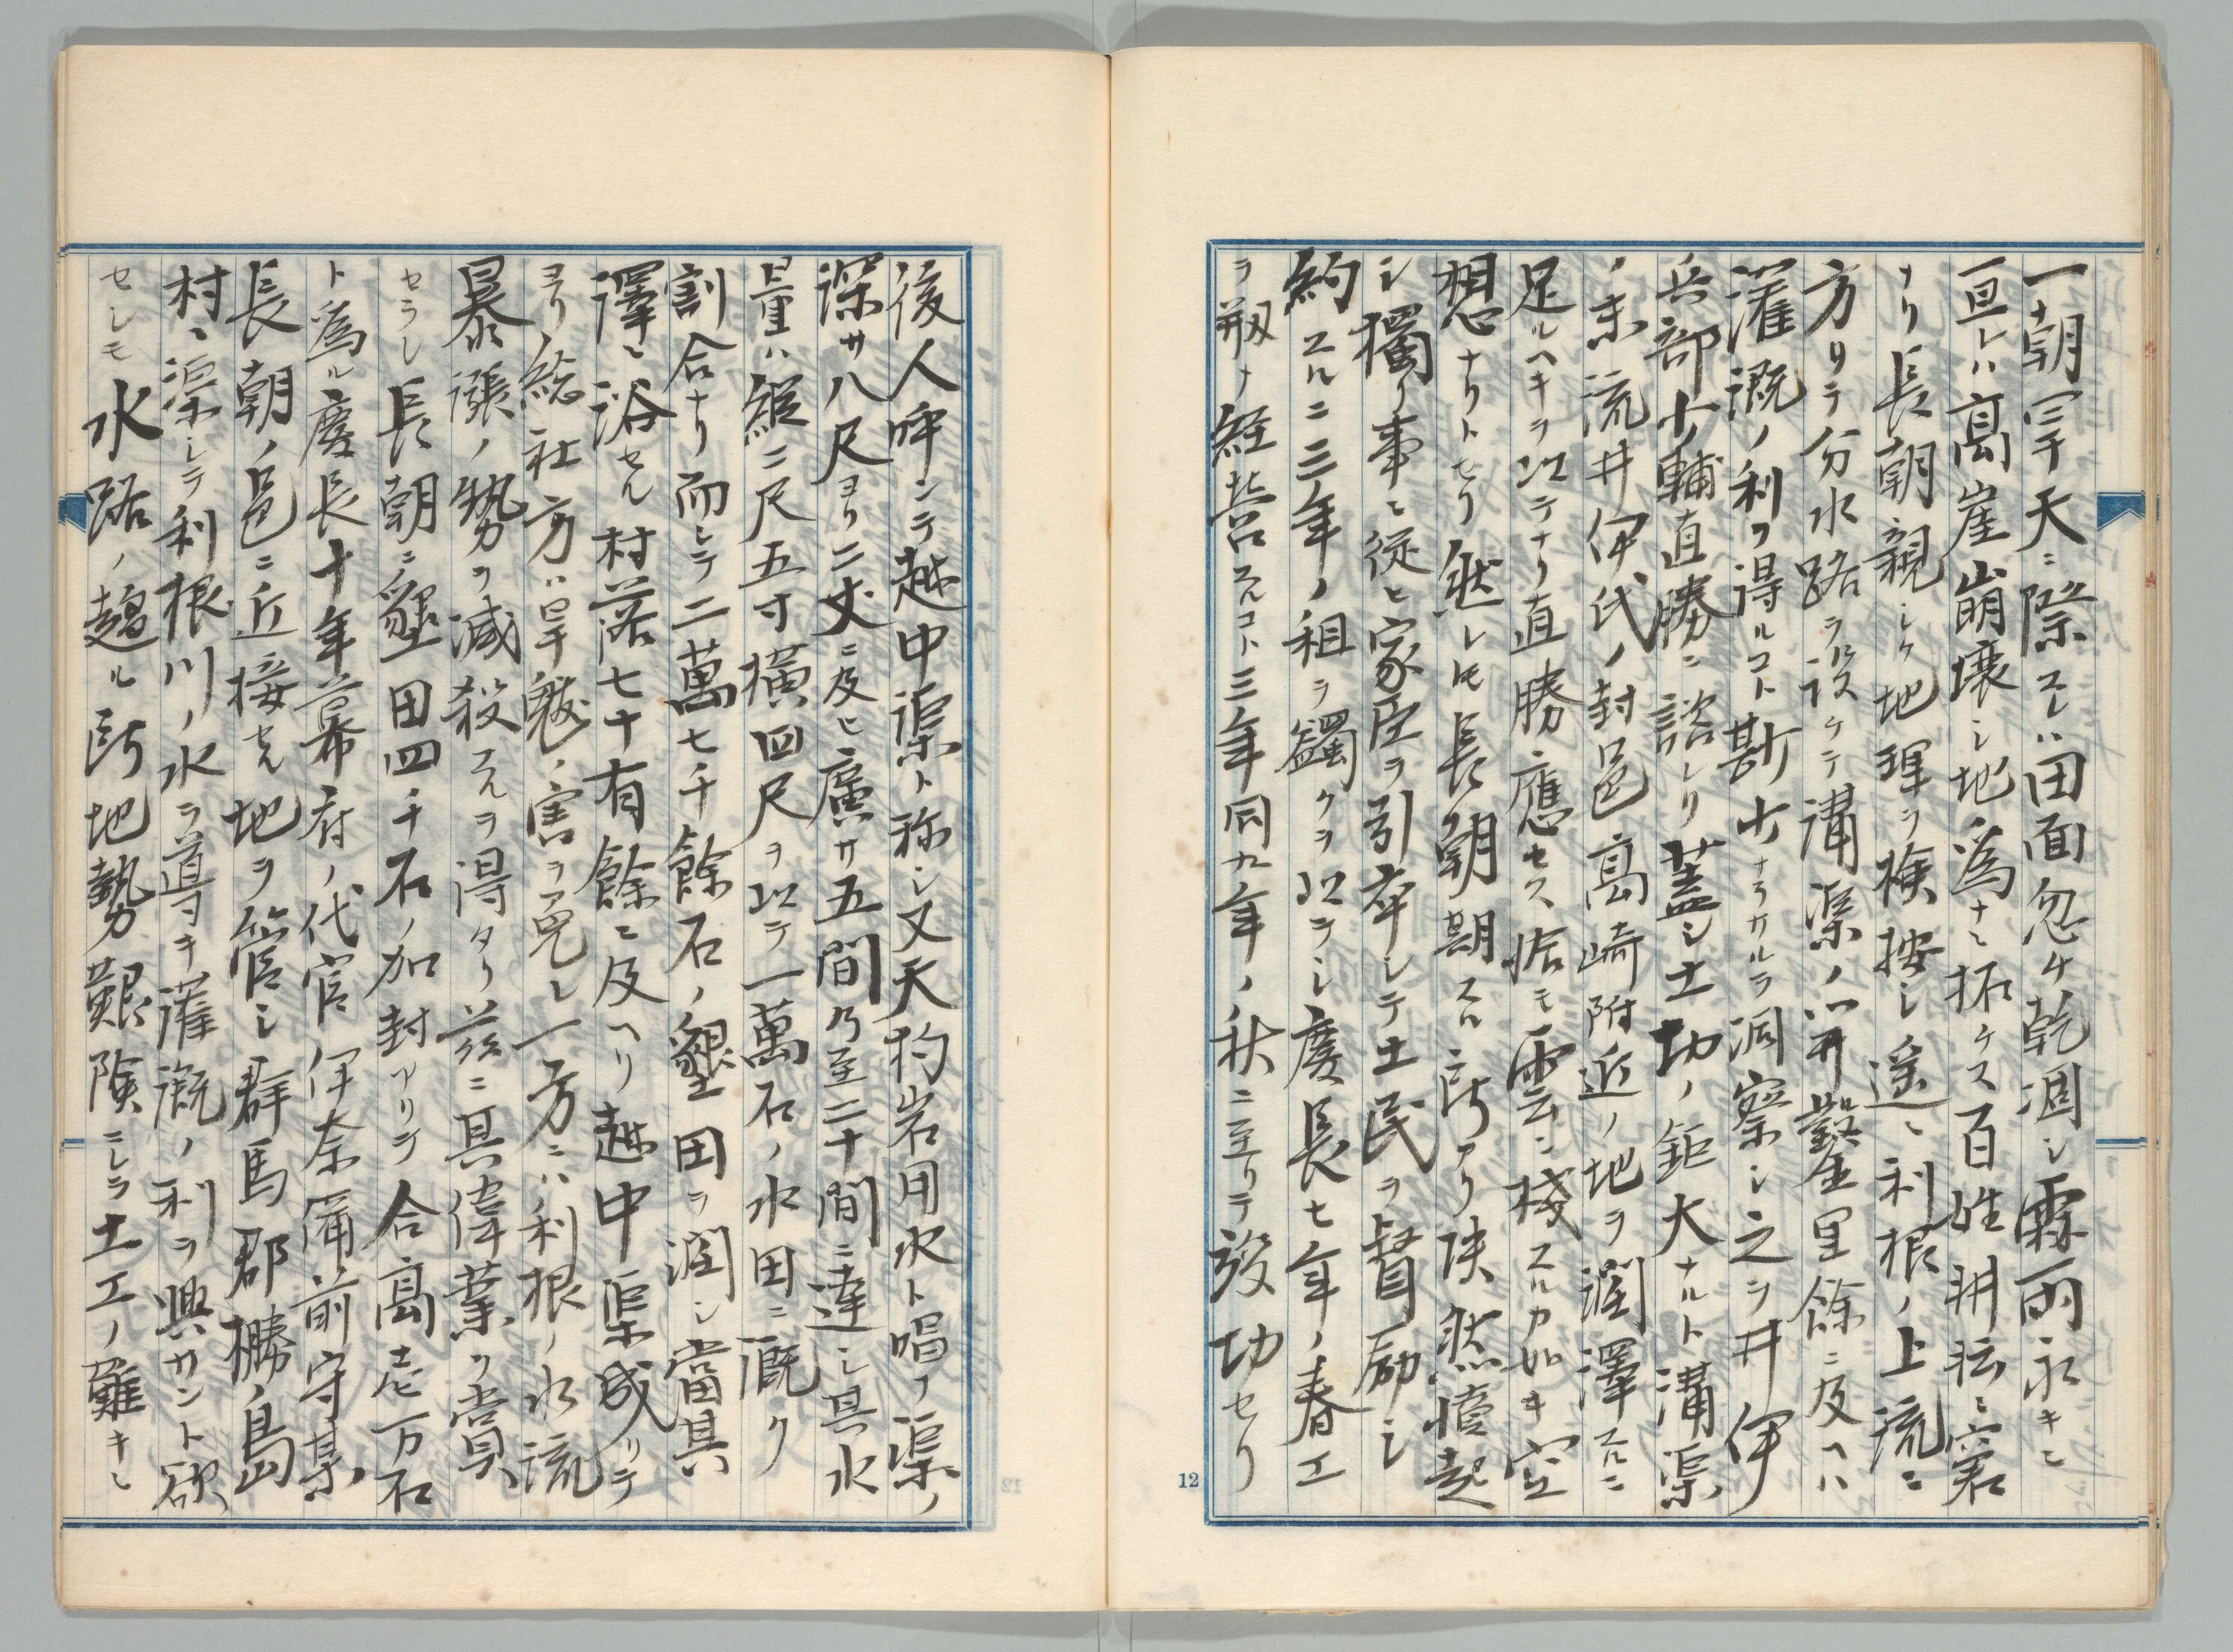 一ナ朝旱天ニ際スレハ田面忽ケ乾涸シ霖雨永キニ
亘レハ高崖崩壊シ地為ナニ拓ケス百姓耕耘ニ窘
ナリ長朝親シケ地理ヲ検按シ遥ニ利根ノ上流ニ
方リテ分水路ヲ設ケテ溝渠ノ開鑿里餘ニ及ヘハ
灌漑ノ利ヲ得ルコト尠少ナラサルヲ洞察シ之ヲ井伊
兵部少輔直勝ニ諮レリ蓋シ土功ノ鉅大ナルト溝渠
ノ末流井伊氏ノ封邑高崎附近ノ地ヲ潤澤スルニ
足ルヘキヲ以テナリ直勝應セス恰モ雲ニ棧スルカ如キ空
想ナリトセリ然レ𪜈長朝期スル所アリ決然憤起
シ獨リ事ニ従ヒ家臣ヲ引率シテ土民ヲ督励シ
約スルニ三年ノ租ヲ蠲クヲ以テシ慶長七年ノ春工
ヲ剏ナ経営スルコト三年同九年ノ秋ニ至リテ竣功セリ
後人呼ンテ越中渠ト称シ又天狗岩用水ト唱フ渠ノ
深サ八尺ヨリ二丈ニ及ヒ廣サ五間乃至二十間ニ達シ其水
量ハ縦二尺五寸横四尺ヲ以テ一萬石ノ水田ニ漑ク
割合ナリ而シテ二萬七千餘石ノ墾田ヲ潤シ當其
澤ニ浴セル村落七十有餘ニ及ヘリ越中渠成リテ
ヨリノ総社方ハ旱魃ノ害ヲ免レ一方ニハ利根ノ水流
暴漲ノ勢ヲ減殺スルヲ得タリ茲ニ其偉業ヲ賞
セラレ長朝ニ墾田四千石ノ加封アリテ合高壱万石
ト為ル慶長十年幕府ノ代官伊奈備前守某
長朝ノ邑ニ近接セル地ヲ管シ群馬郡樆ノ島
村ニ渠シテ利根川ノ水ヲ導キ灌漑ノ利ヲ興サント欲
セシモ水路ノ趨ル所地勢艱険ニシテ土工ノ難キニ
12